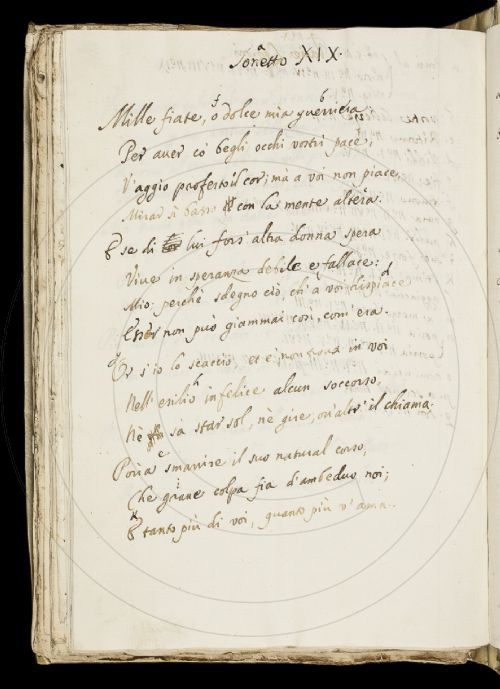 Sonetto XIX.
Mille fiate, o dolce mia guerriera,
Per aver co' begli occhi vostri pace,
V'aggio proferto il cor; mà a voi non piace
Mirar sì basso con la mente altera.
E se di lui fors' altra donna spera
Vive in speranza debile e fallace:
Mio perchè sdegno ciò, ch' a voi dispiace
Esser non può giammai così, com' era.
Or s' io lo scaccio, et e' non trova in voi
Nell' esilio infelice alcun soccorso,
Nè sa star sol, nè gire, ov' altr' il chiama.
Poria smarrire il suo natural corso,
Che grave colpa fia d' ambeduo noi;
E tanto più di voi, quanto più v' ama.